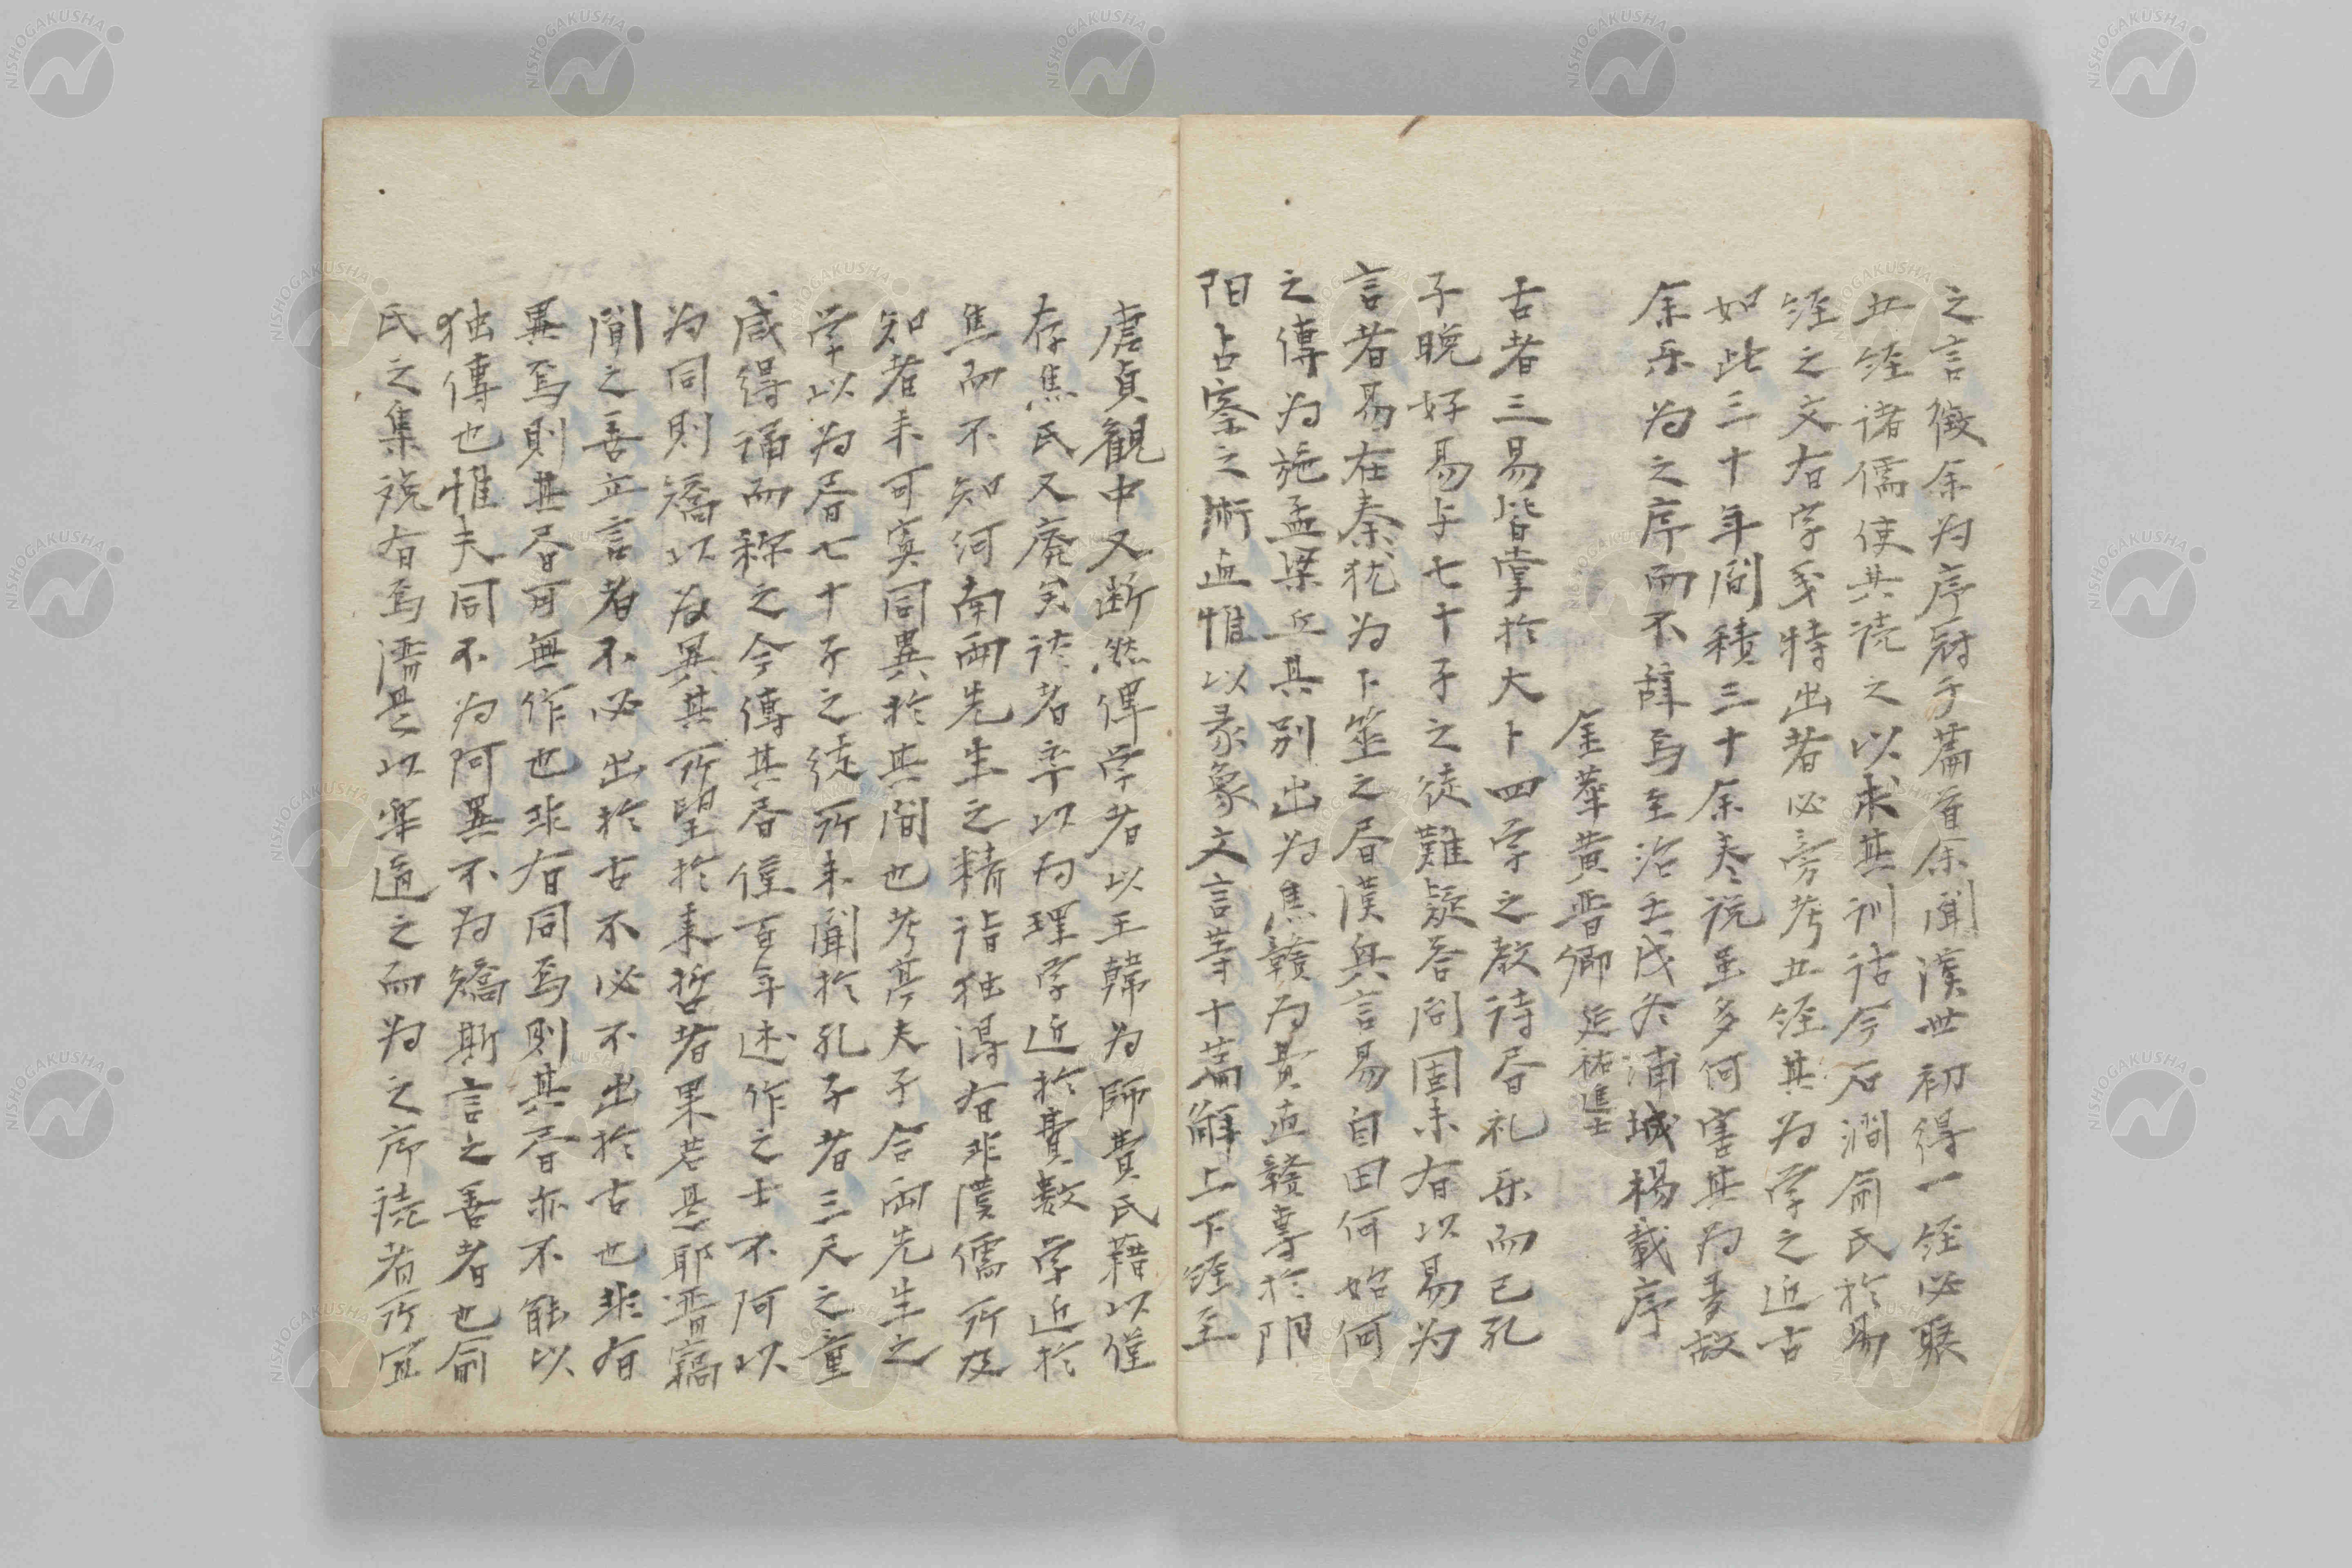 之言徵余为序冠于篇首余聞漢世初得一経必聚
五経諸儒使共読之以求其訓詁今石澗俞氏於易
経之文有字义特出者必旁考五経其为学之近古
如此三十年间積三十余夫说虽多何害其为妻故
余乐为之序而不辞焉至治壬戌冬浦城楊載序
金華黄晋卿 延祐進士
古者三易皆掌於大卜四学之教待春礼乐而已孔
子晚好易与七十子之徒難疑答问固未有以易为
言者易在秦犹为卜筮之書漢興言易自田何始何
之傳为施孟梁丘其别出为焦赣为費直赣專於阴
阳占察之術直惟以彖象文言等十篇解上下経至
唐貞観中又断然俾学者以王韓为師費氏藉以僅
存焦氏又廃矣談者率以为理学近於費数学近於
焦而不知河南両先生之精詣独得有非漢儒所及
知者未可寘同異於其间也考亭夫子合両先生之
学以为書七十子之徒所未聞於孔子者三尺之童
咸得誦而称之今傳其書僅百年述作之士不阿以
为同則矯以為異其所望於来哲者果若是耶晋窩
聞之善立言者不必出於古不必不出於古也非有
異焉則其書可無作也非有同焉則其書亦不能以
独傳也惟夫同不为阿異不为矯斯言之善者也俞
氏之集说有焉濡是以率道之而为之序読者所宜